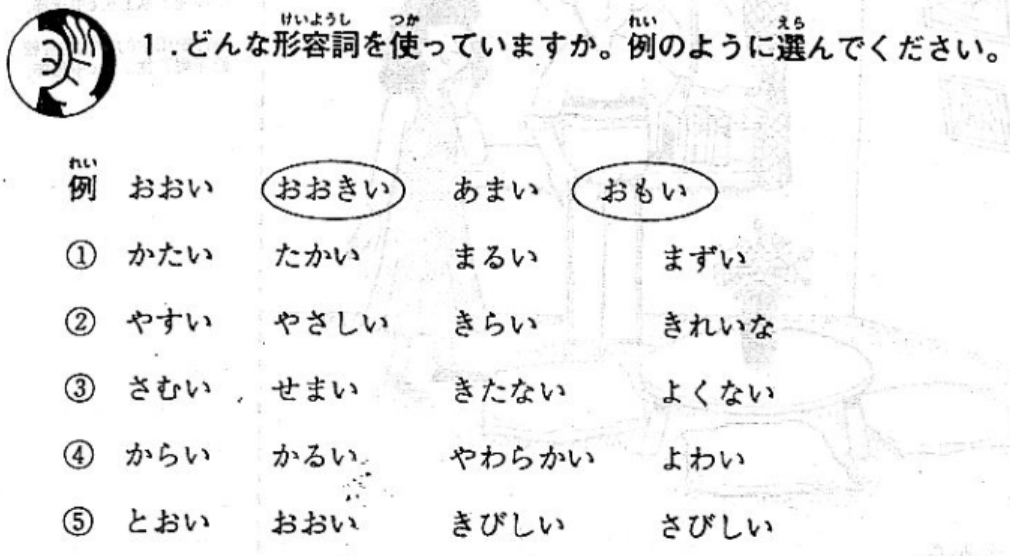 1．どんな形容詞を使っていますか。例のように選んでください。
例 おおい おおきい あまい おもい
① かたい たかい まるい まずい
② やすい やさしい きらい きれいな
③ さむい せまい きたない よくない
④ からい かるい やわらかい よわい
⑤ とおい おおい きびしい さびしい